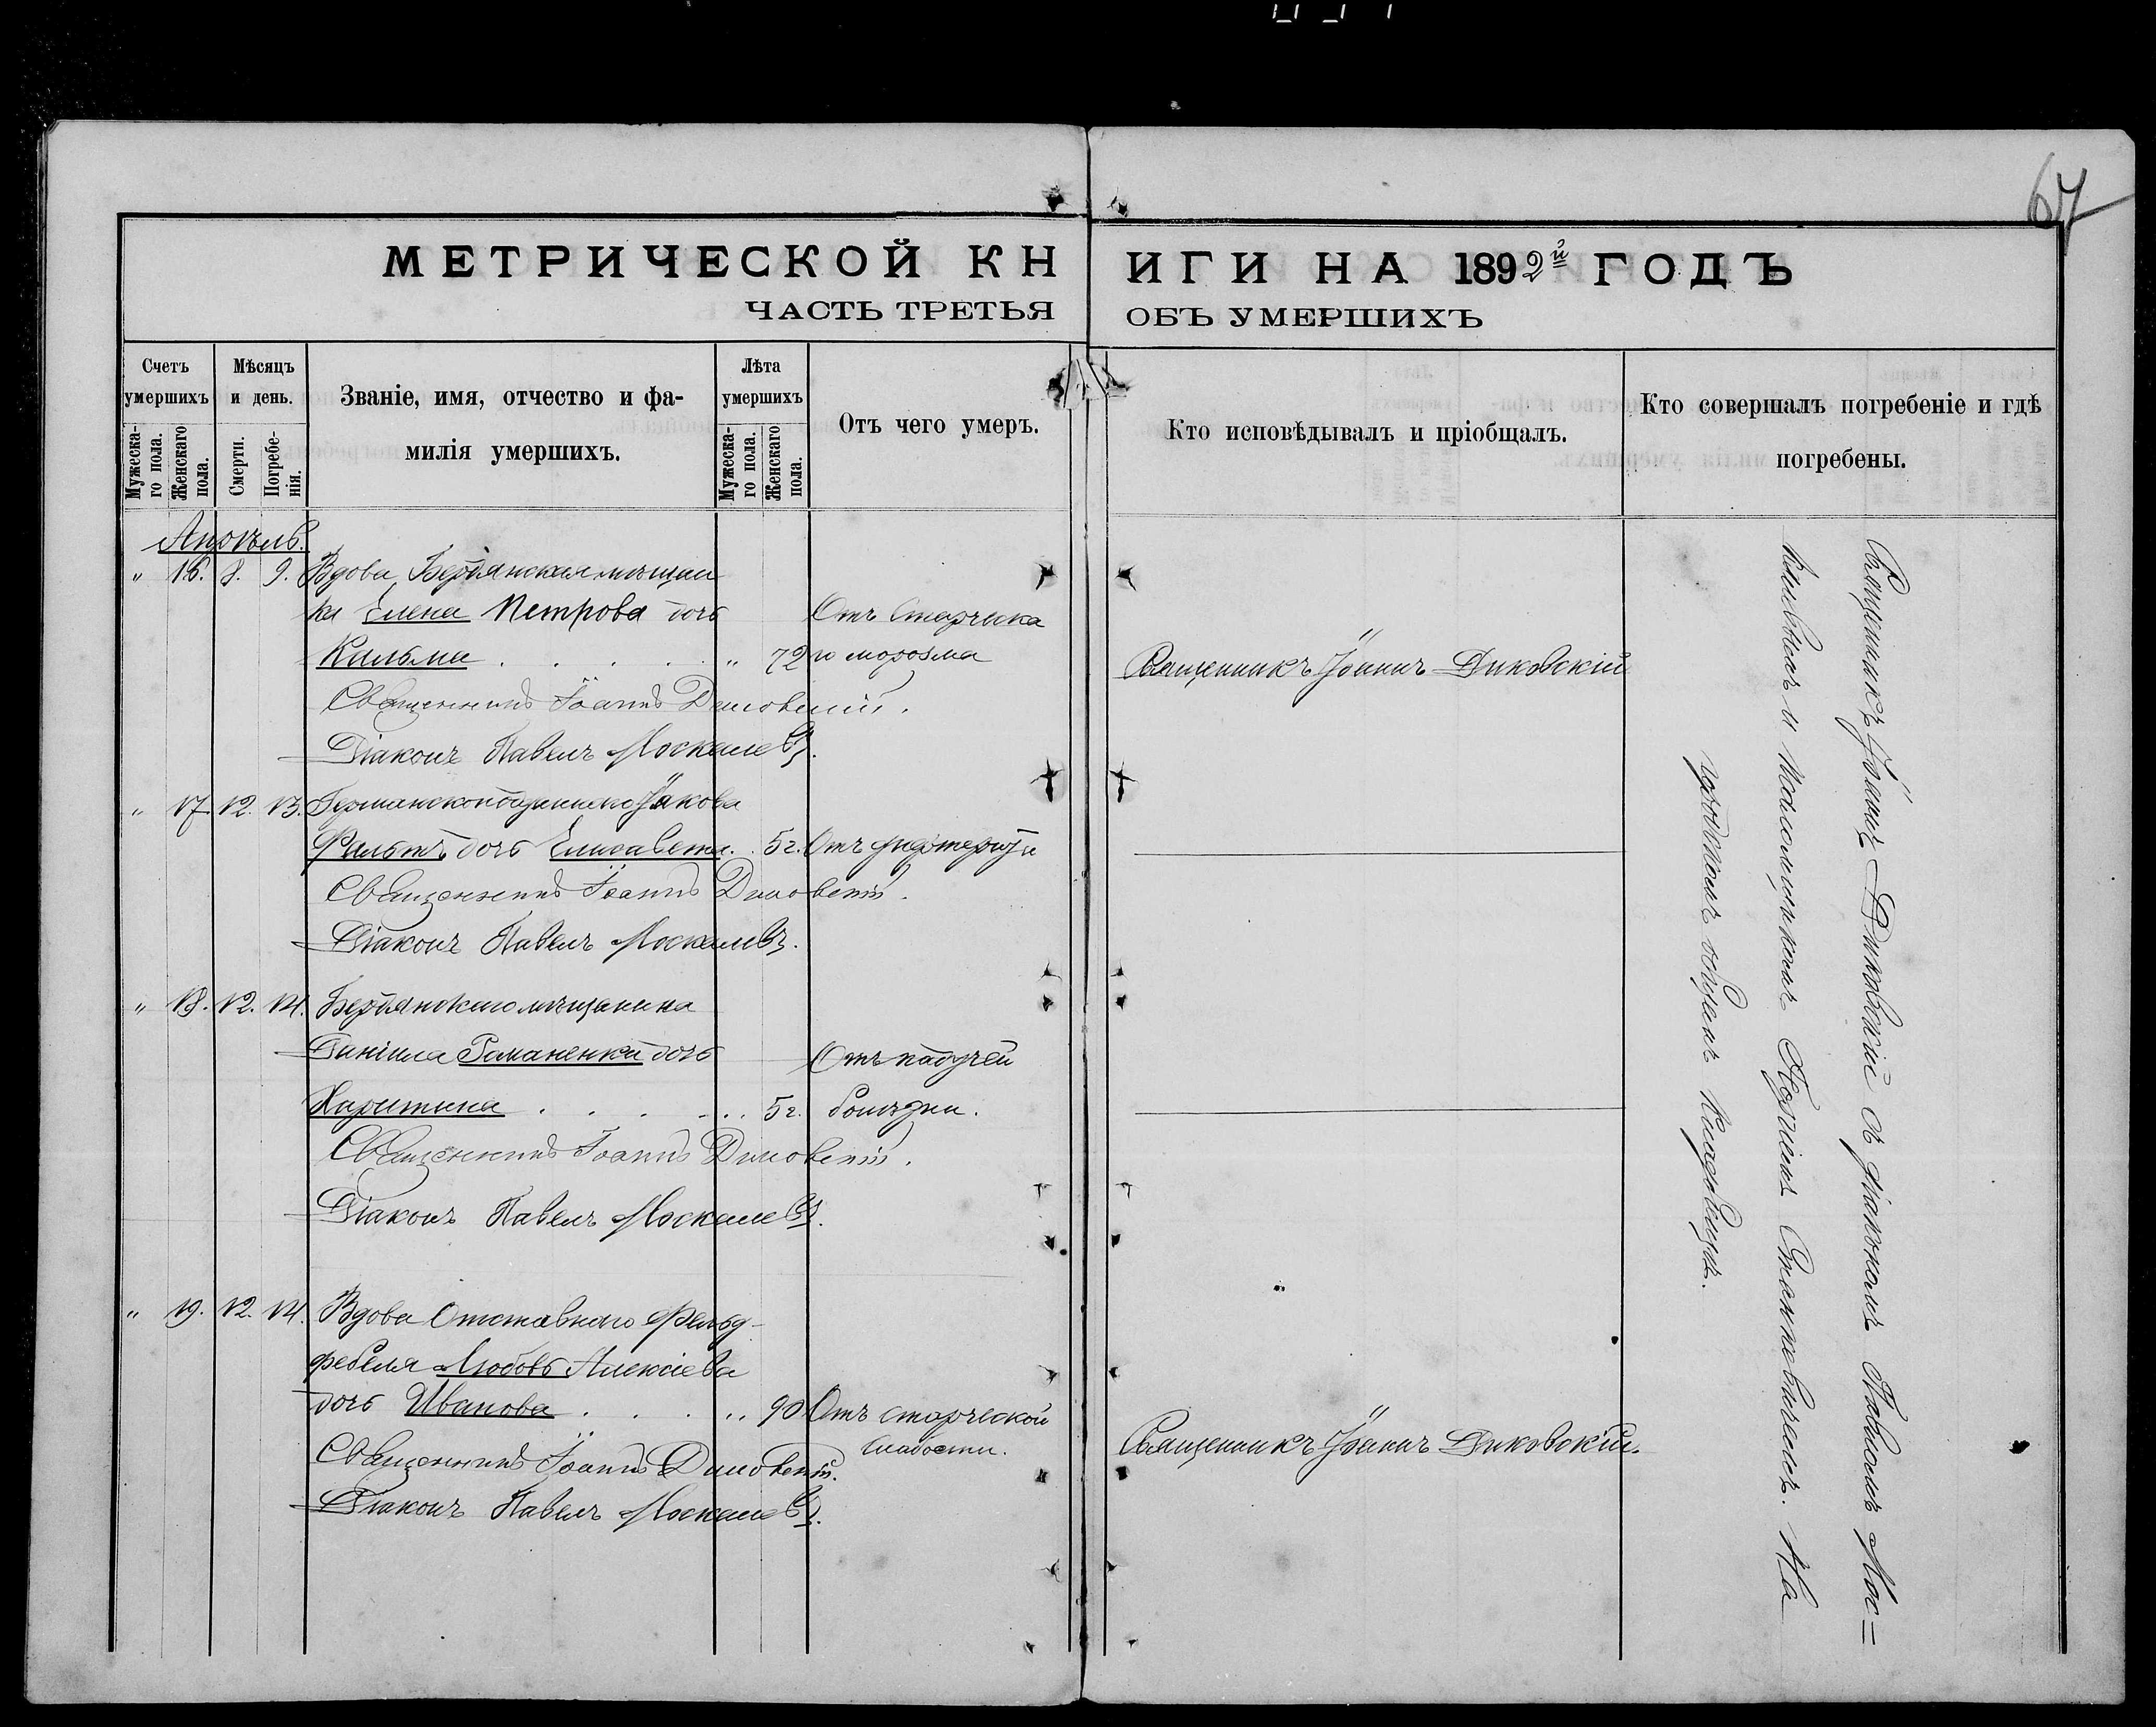 67
МЕТРИЧЕСКОЙ КНИГИ НА 1892й ГОДЪ
ЧАСТЬ ТРЕТЬЯ ОБЪ УМЕРШИХЪ
Счетъ умершихъ
Мужескаго пола.
Женскаго пола.
Мѣсяцъ и день.
Смерти.
Погребенія.
Званіе, имя, отчество и фамилія умершихъ.
Лѣта умершихъ
Мужескаго пола.
Женскаго пола.
Отъ чего умеръ.
Кто исповѣдывалъ и пріобщалъ.
Кто совершалъ погребеніе и гдѣ погребены.
Апрѣль.
" 16. 8. 9. Вдова Бердянская мѣщан
ка Елена Петрова дочь Отъ старческа
Кильма . . . . . " 72 го морозма Священникъ Іоаннъ Диковскій
Священникъ Іоаннъ Диковскій.
Діаконъ Павелъ Москалевъ.
" 17 12. 13. Германскоподданнаго Іакова
Фальтъ дочь Елисавета. . 5 г. Отъ дифтерита
Священникъ Іоаннъ Диковскій.
Діаконъ Павелъ Москалевъ.
" 18. 12. 14. Бердянскаго мѣщанина
Даніила Романенка дочь Отъ падучей
Харитина . . . . . . 5 г. болѣзни.
Священникъ Іоаннъ Диковскій.
Діаконъ Павелъ Москалевъ.
" 19. 12. 14. Вдова Отставнаго Фельд-
фебеля Любовь Алексіева
дочь Иванова . . . . . 90 Отъ старческой
слабости. Священникъ Іоаннъ Диковскій.
Священникъ Іоаннъ Диковскій.
Діаконъ Павелъ Москалевъ.
Священникъ Іоаннъ Диковскій съ діакономъ Павломъ Мос=
калевымъ и Псаломщикомъ Станкевичемъ. На
общемъ Кладбищѣ.